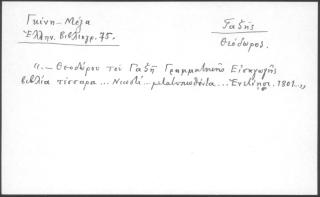 Γκίνη-Μέξα
Ἑλλην. βιβλιογρ. 75.
Γαζῆς
Θεόδωρος.
".- Θεοδώρου τοῦ Γαζῆ Γραμματικῆς Εἰσαγωγῆς
βιβλία τέσσαρα ... Νεωστί .. μετατυπωθέντα ... Ἐνετίῃσι. 1801..,,